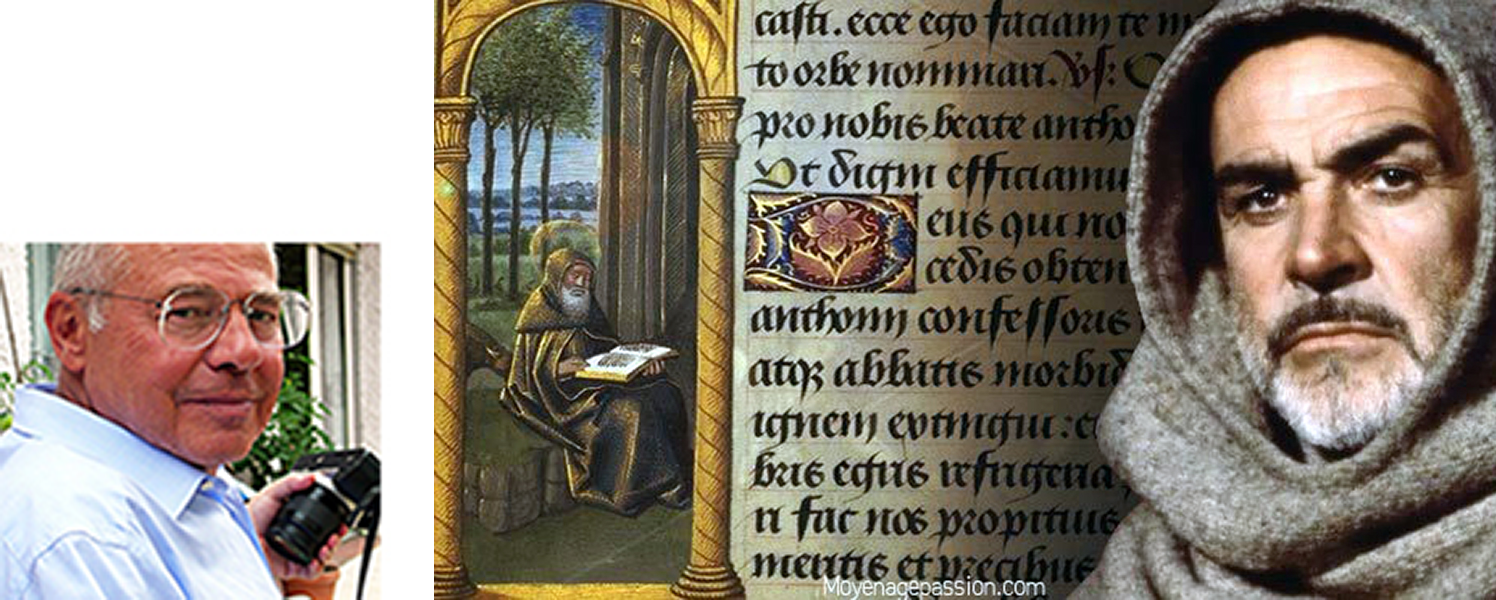 casti. ecce ego faciam te m
to orbe nominari. Vs: O
pro nobis beate antho
Vt digni efficiamu
Deus qui no
cedis obten
anthonij confessoris
atqz abbatis morbid
ignem extingui: et
bris egris refrigeria
n fac nos propitius
meritis et precibus
Moyenagepassion.com